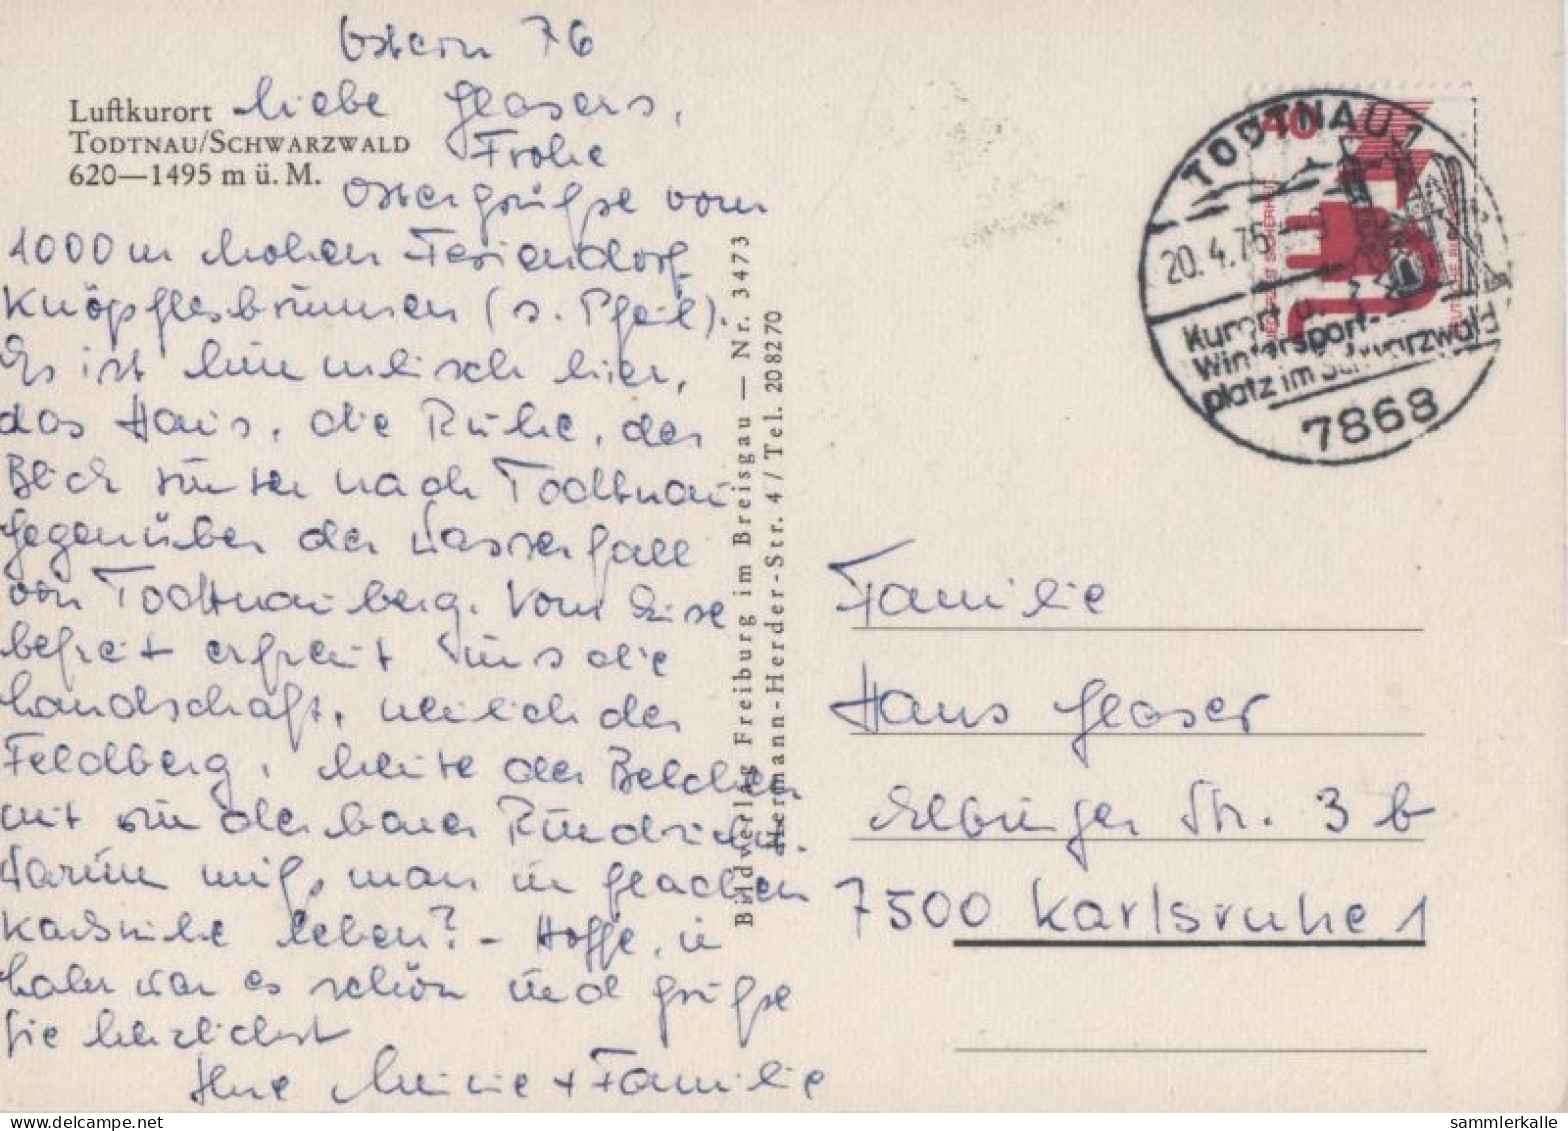 Ostern 76
Liebe Glasers,
Frohe
Ostergrüße vom
1000 m hohen Feriendorf
Knöpflesbrunnen (s. Pfeil).
Es ist himmlisch hier,
das Haus, die Ruhe, der
Blick runter nach Todtnau
gegenüber der Wasserfall
von Todtnauberg. Vom Eise
befreit erfreut uns die
Landschaft, neulich der
Feldberg, heute der Belchen
mit wunderbarer Rundsicht.
Warum muß man in
Karlsruhe leben? - Hoffe, in
war es schön und grüße
Sie herzlichst
Ihre + Familie
Luftkurort
TODTNAU/SCHWARZWALD
620—1495 m ü. M.
Bildverlag Freiburg im Breisgau — Nr. 3473
Hermann-Herder-Str. 4 / Tel. 208270
40
TODTNAU 1
20.4.76
Kurort u.
Wintersport-
platz im Schwarzwald
7868
Familie
Hans Glaser
Elbinger Str. 3 b
7500 Karlsruhe 1
www.delcampe.net
sammlerkalle